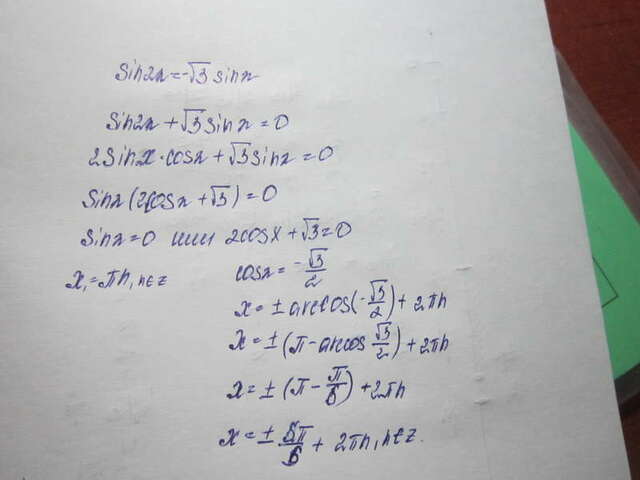 sin2x=-√3 sinx
sin2x+√3 sinx=0
2sinx·cosx+√3 sinx=0
sinx(2cosx+√3)=0
sinx=0 или 2cosx+√3=0
x₁=πn, n∈z
cosx=-√3/2
x=±arccos(-√3/2)+2πn
x=±(π-arccos √3/2)+2πn
x=±(π-π/6)+2πn
x=±5π/6+2πn, n∈z.